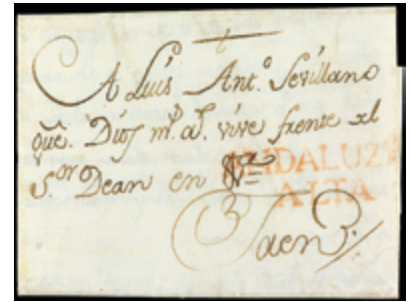 A Luis Ant.º Sevillano
que. Dios m.s a.s vive frente al
S.or Dean en
ANDALUZIA
ALTA
Jaen